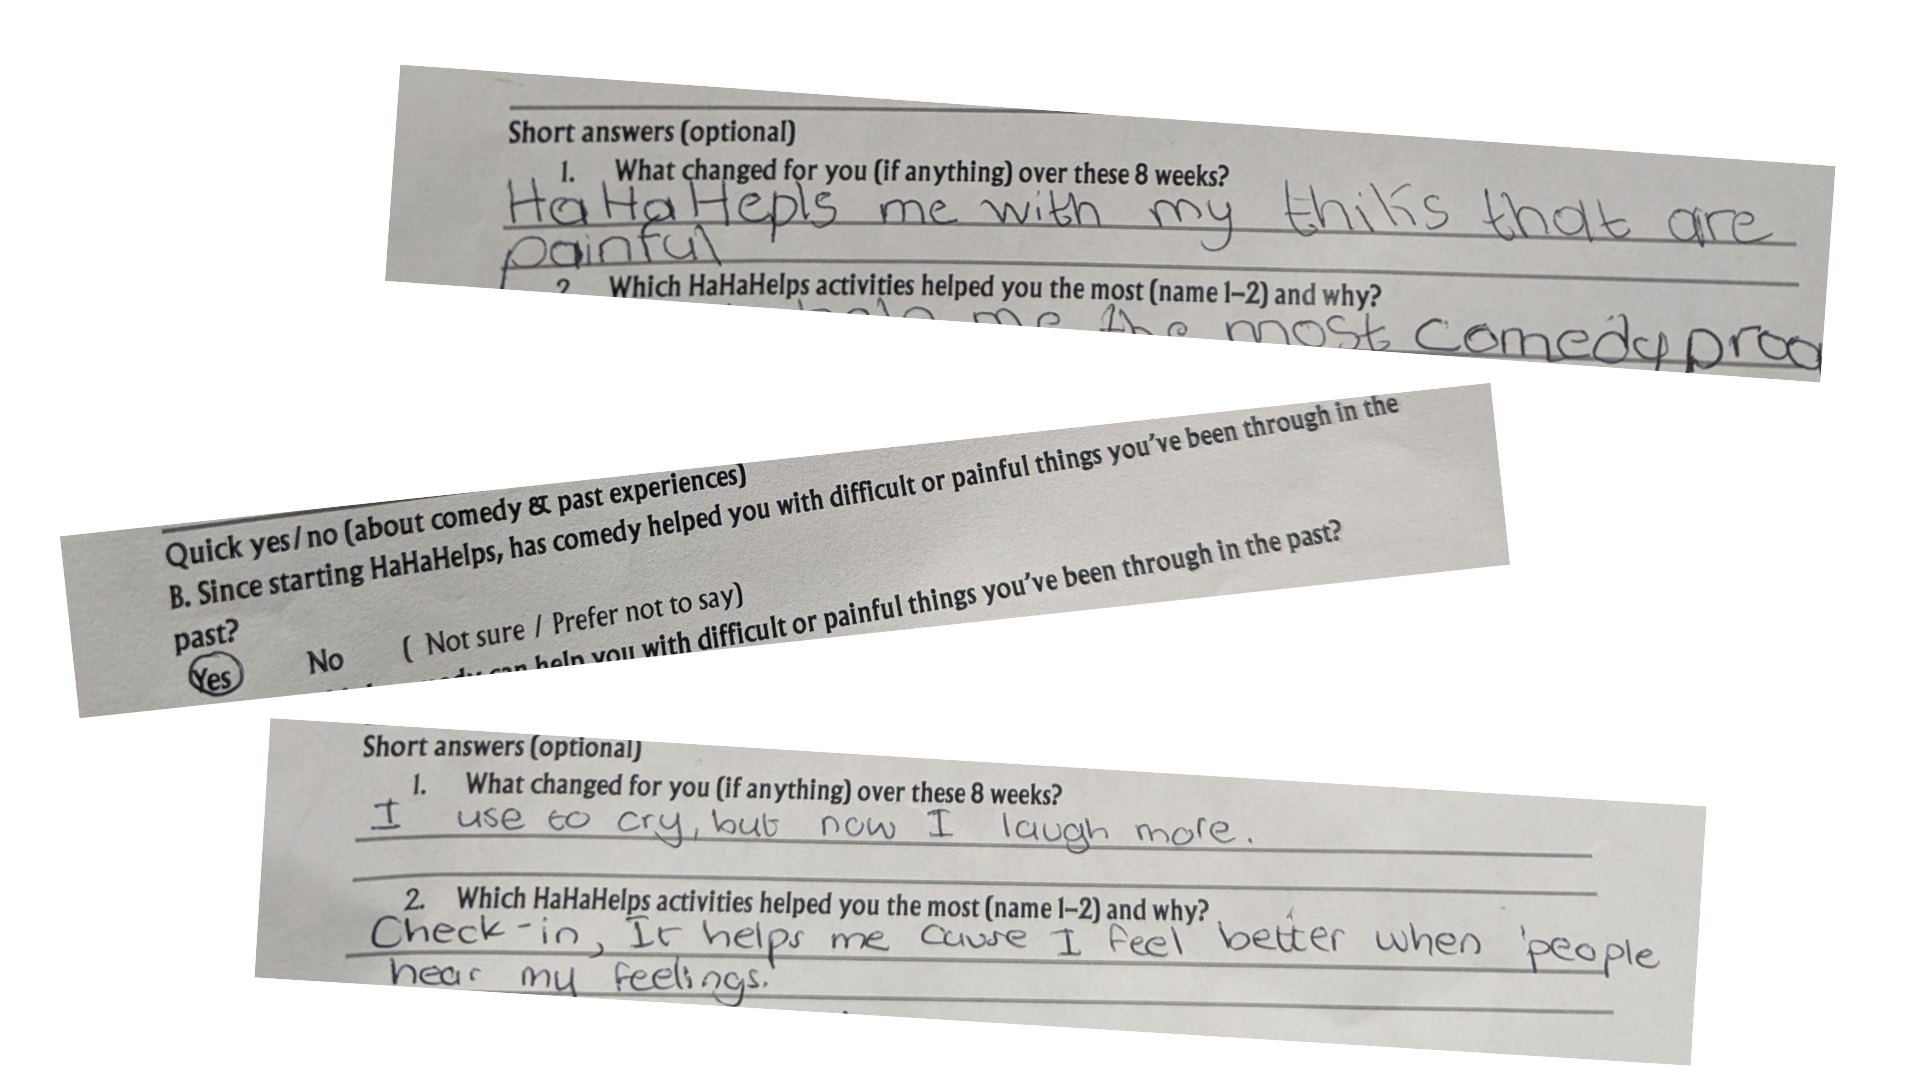 Short answers (optional)
1. What changed for you (if anything) over these 8 weeks?
HaHaHepls me with my thiks that are
painful
2 Which HaHaHelps activities helped you the most (name 1–2) and why?
me the most comedy
Quick yes/no (about comedy & past experiences)
B. Since starting HaHaHelps, has comedy helped you with difficult or painful things you've been through in the
past?
Yes No ( Not sure / Prefer not to say)
can help you with difficult or painful things you've been through in the past?
Short answers (optional)
1. What changed for you (if anything) over these 8 weeks?
I use to cry, but now I laugh more.
2. Which HaHaHelps activities helped you the most (name 1–2) and why?
Check-in, It helps me cause I feel better when people
hear my feelings.